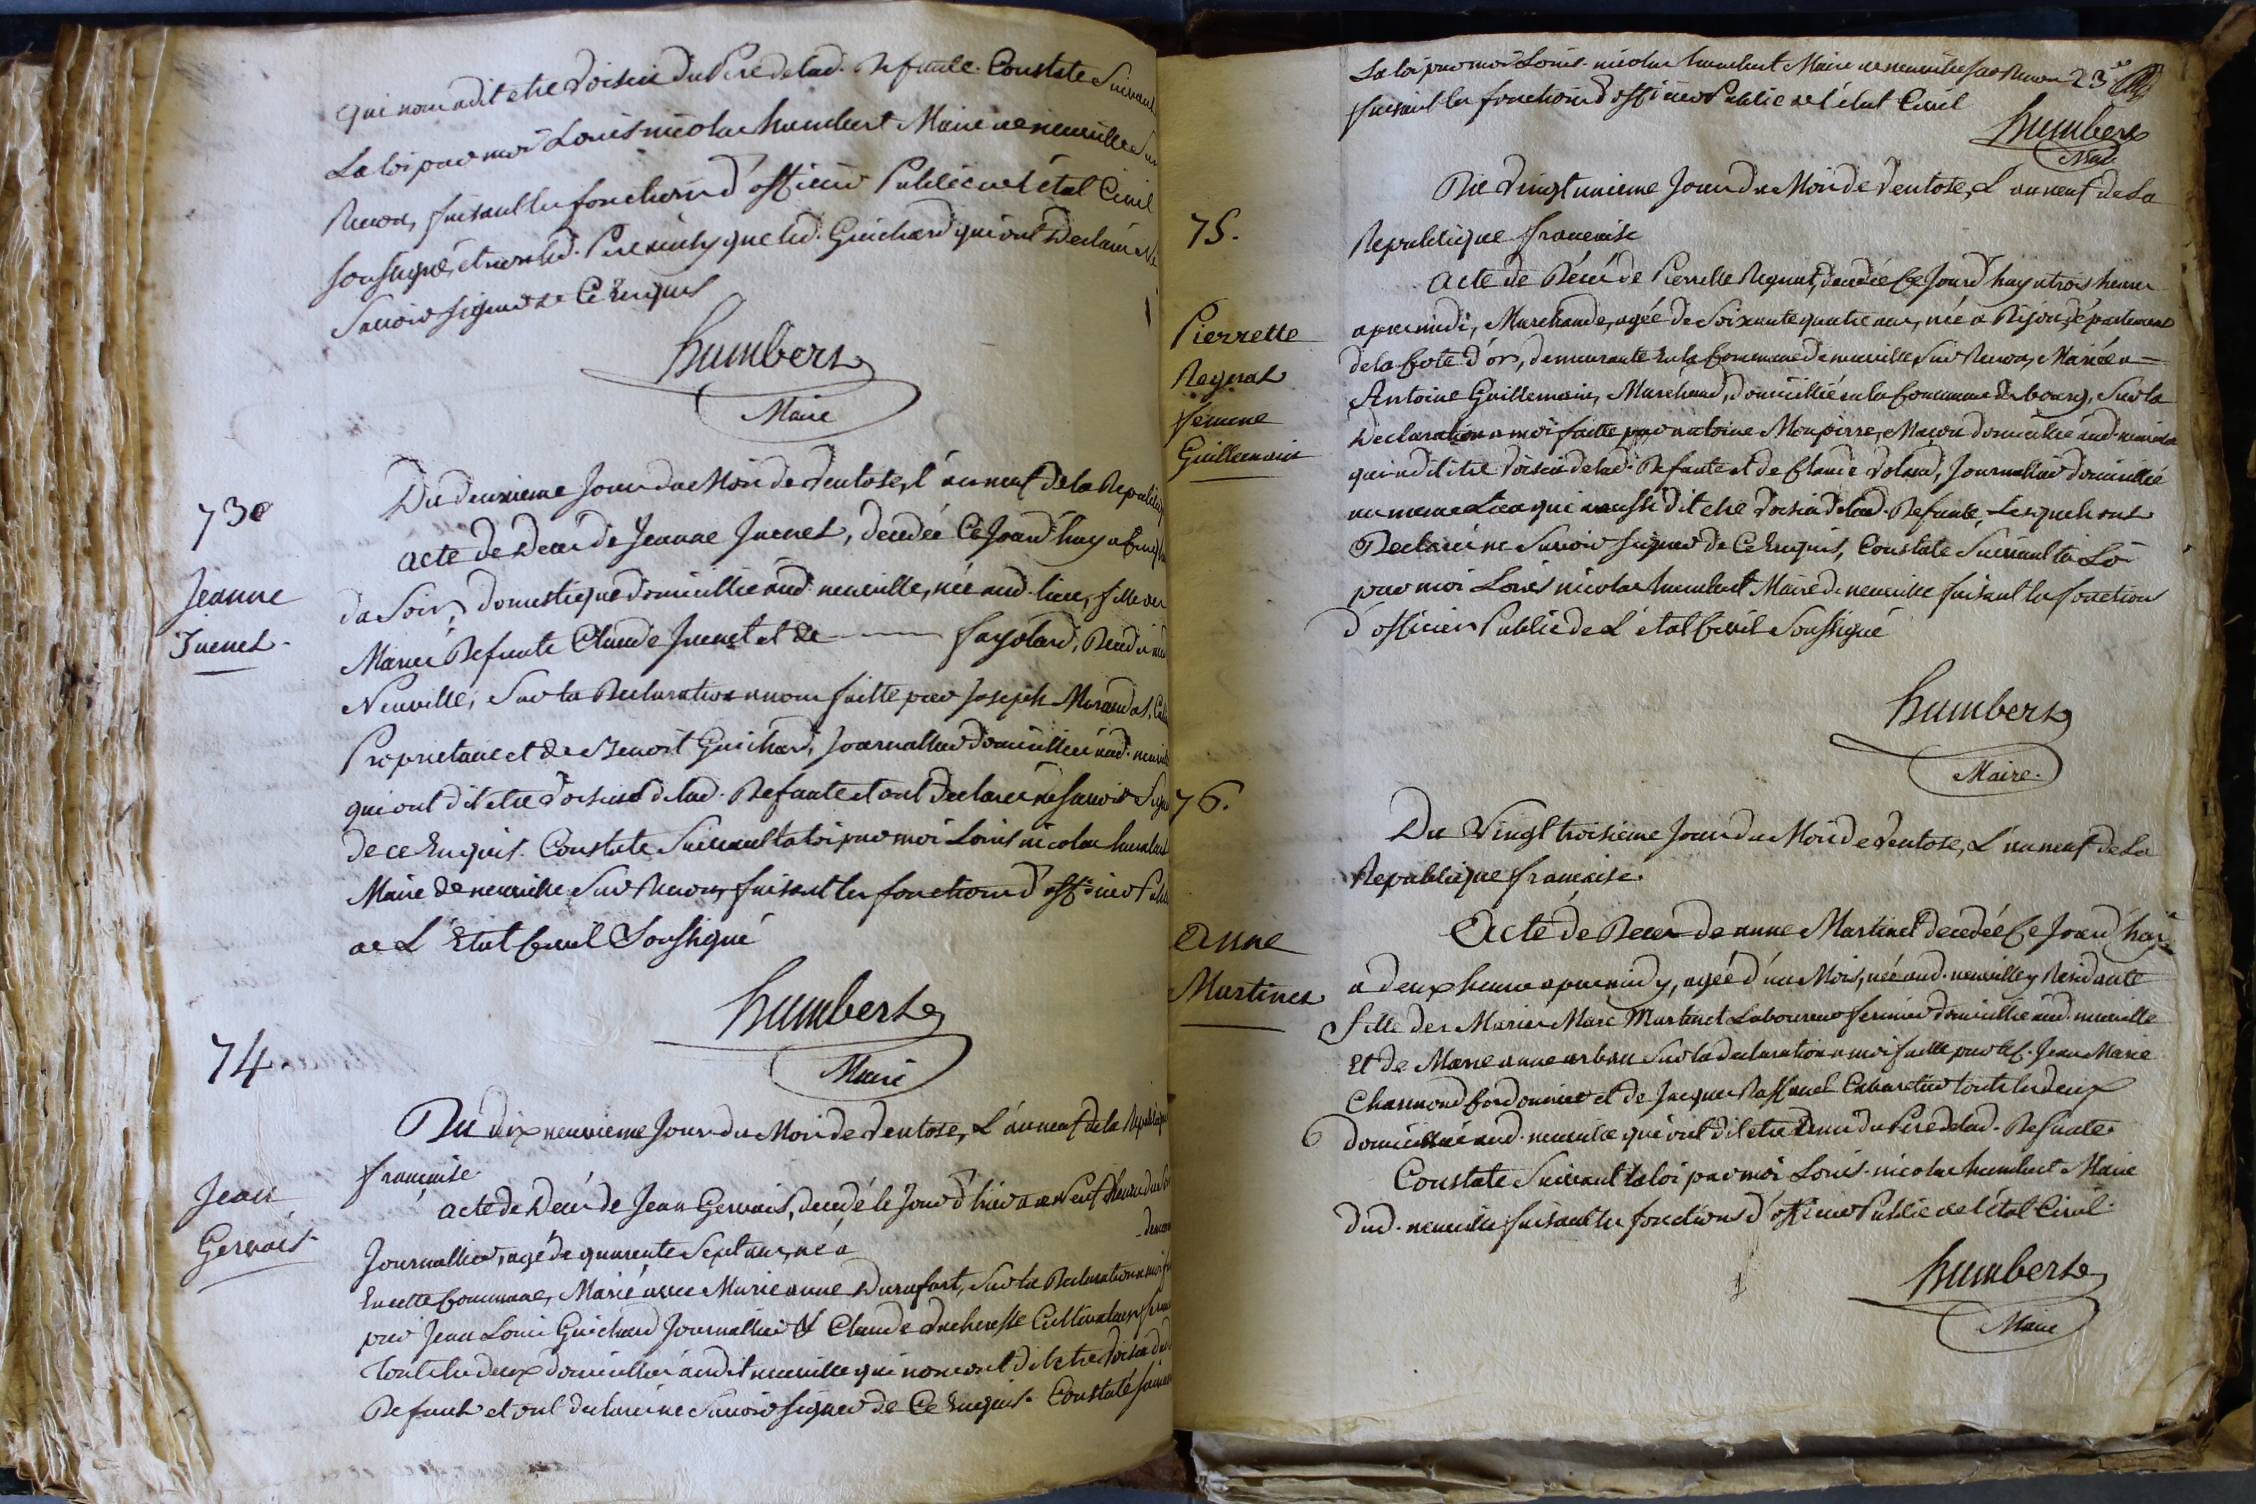 qui nous a dit etre Voisin du Pere de lad. Defunte. Constate Suivant
La loi par moi Louis nicolas humbert Maire de neuville Sur
Renon, faisant les fonctions d'officier Public de l'état Civil
soussigné, et non led. Pere ainsy que led. Guichard qui ont Declaré Ne
Savoir signer de Ce Enquis
humbert
Maire
73e
Jeanne
Juenet.
Du deuxieme Jour du Mois de Ventose, l'an neuf de la Republique
acte de Décès de Jeanne Juenet, decedée Ce Jourd'huy a Cinq
du Soir, domestique domicilliée aud. neuville, née aud. lieu, fille des
Mariés Defunte Claude Juenet et de Fayolard, Resid. aud.
Neuville, Sur la Declaration a nous faitte par Joseph Morandas,
Proprietaire et de Benoit Guichard, Journallier domicilliés aud. neuville
qui ont dit etre Voisins de lad. Defunte et ont Declaré ne Savoir Signer
de ce Enquis. Constate Suivant la loi par moi Louis nicolas humbert
Maire de neuville Sur Renon, faisant les fonctions d'officier Public
de L'Etat Civil Soussigné
humbert
Maire
74
Jean
Gervais
Du dix neuvieme Jour du Mois de Ventose, L'an neuf de la Republique
francaise.
acte de Décès de Jean Gervais, Decedé le Jour d'hier a neuf heures du
Journallier, agé de quarente Sept ans, né a
En cette Commune, Marié avec Marie anne Durafort, Sur la Declaration a moi
par Jean Louis Guichard Journallier & Claude Ducheresse Cultivateur
tout les deux domicilliés audit neuville qui nous ont dit etre Voisin dud.
Defunt et ont declaré ne Savoir signer de Ce Enquis. Constaté suivant
La loi par moi Louis nicolas humbert Maire de neuville sur Renon 23e
faisant les fonctions d'officier Public de l'état Civil
humbert
Maire
75.
Pierrette
Regnat
femme
Guillemain
Du Vingt unieme Jour du Mois de Ventose, L'an neuf de La
Republique francaise
acte de Décès de Pierrette Regnat, decedée Ce Jourd'huy a trois heures
apres midi, Marchande, agée de Soixante quatre ans, née a Dijon, département
de la Cote d'or, demeurante En la Commune de neuville Sur Renon, Mariée a
Antoine Guillemain, Marchand, domicillié en la Commune de bourg, Sur la
Declaration a moi faitte par antoine Monpirre, Maçon domicillié aud. neuville
qui a dit etre Voisin de lad. Defunte et de Claude Volard, Journallier domicillié
au meme Lieu qui a aussi dit etre Voisin de lad. Defunte, Lesquels ont
Declaré ne Savoir signer de Ce Enquis, Constate Suivant la Loi
par moi Louis nicolas humbert Maire de neuville faisant les fonctions
d'officier Public de L'état Civil Soussigné
humbert
Maire.
76.
Anne
Martinet
Du Vingt troisieme Jour du Mois de Ventose, L'an neuf de La
Republique francaise.
Acte de Décès de anne Martinet decedée Ce Jourd'hui
a deux heures apres midy, agée d'un Mois, née aud. neuville y Residante
fille des Mariés Marc Martinet Laboureur fermier domicillié aud. neuville
Et de Marie anne urban Sur la declaration a moi faitte par le C. Jean Marie
Charmond Cordonnier et de Jacques Raffanel Cabaretier touts les deux
domicilliés aud. neuville qui ont dit etre amis du Pere de lad. Defunte
Constate Suivant la loi par moi Louis nicolas humbert Maire
dud. neuville faisant les fonctions d'officier Public de l'état Civil.
humbert
Maire